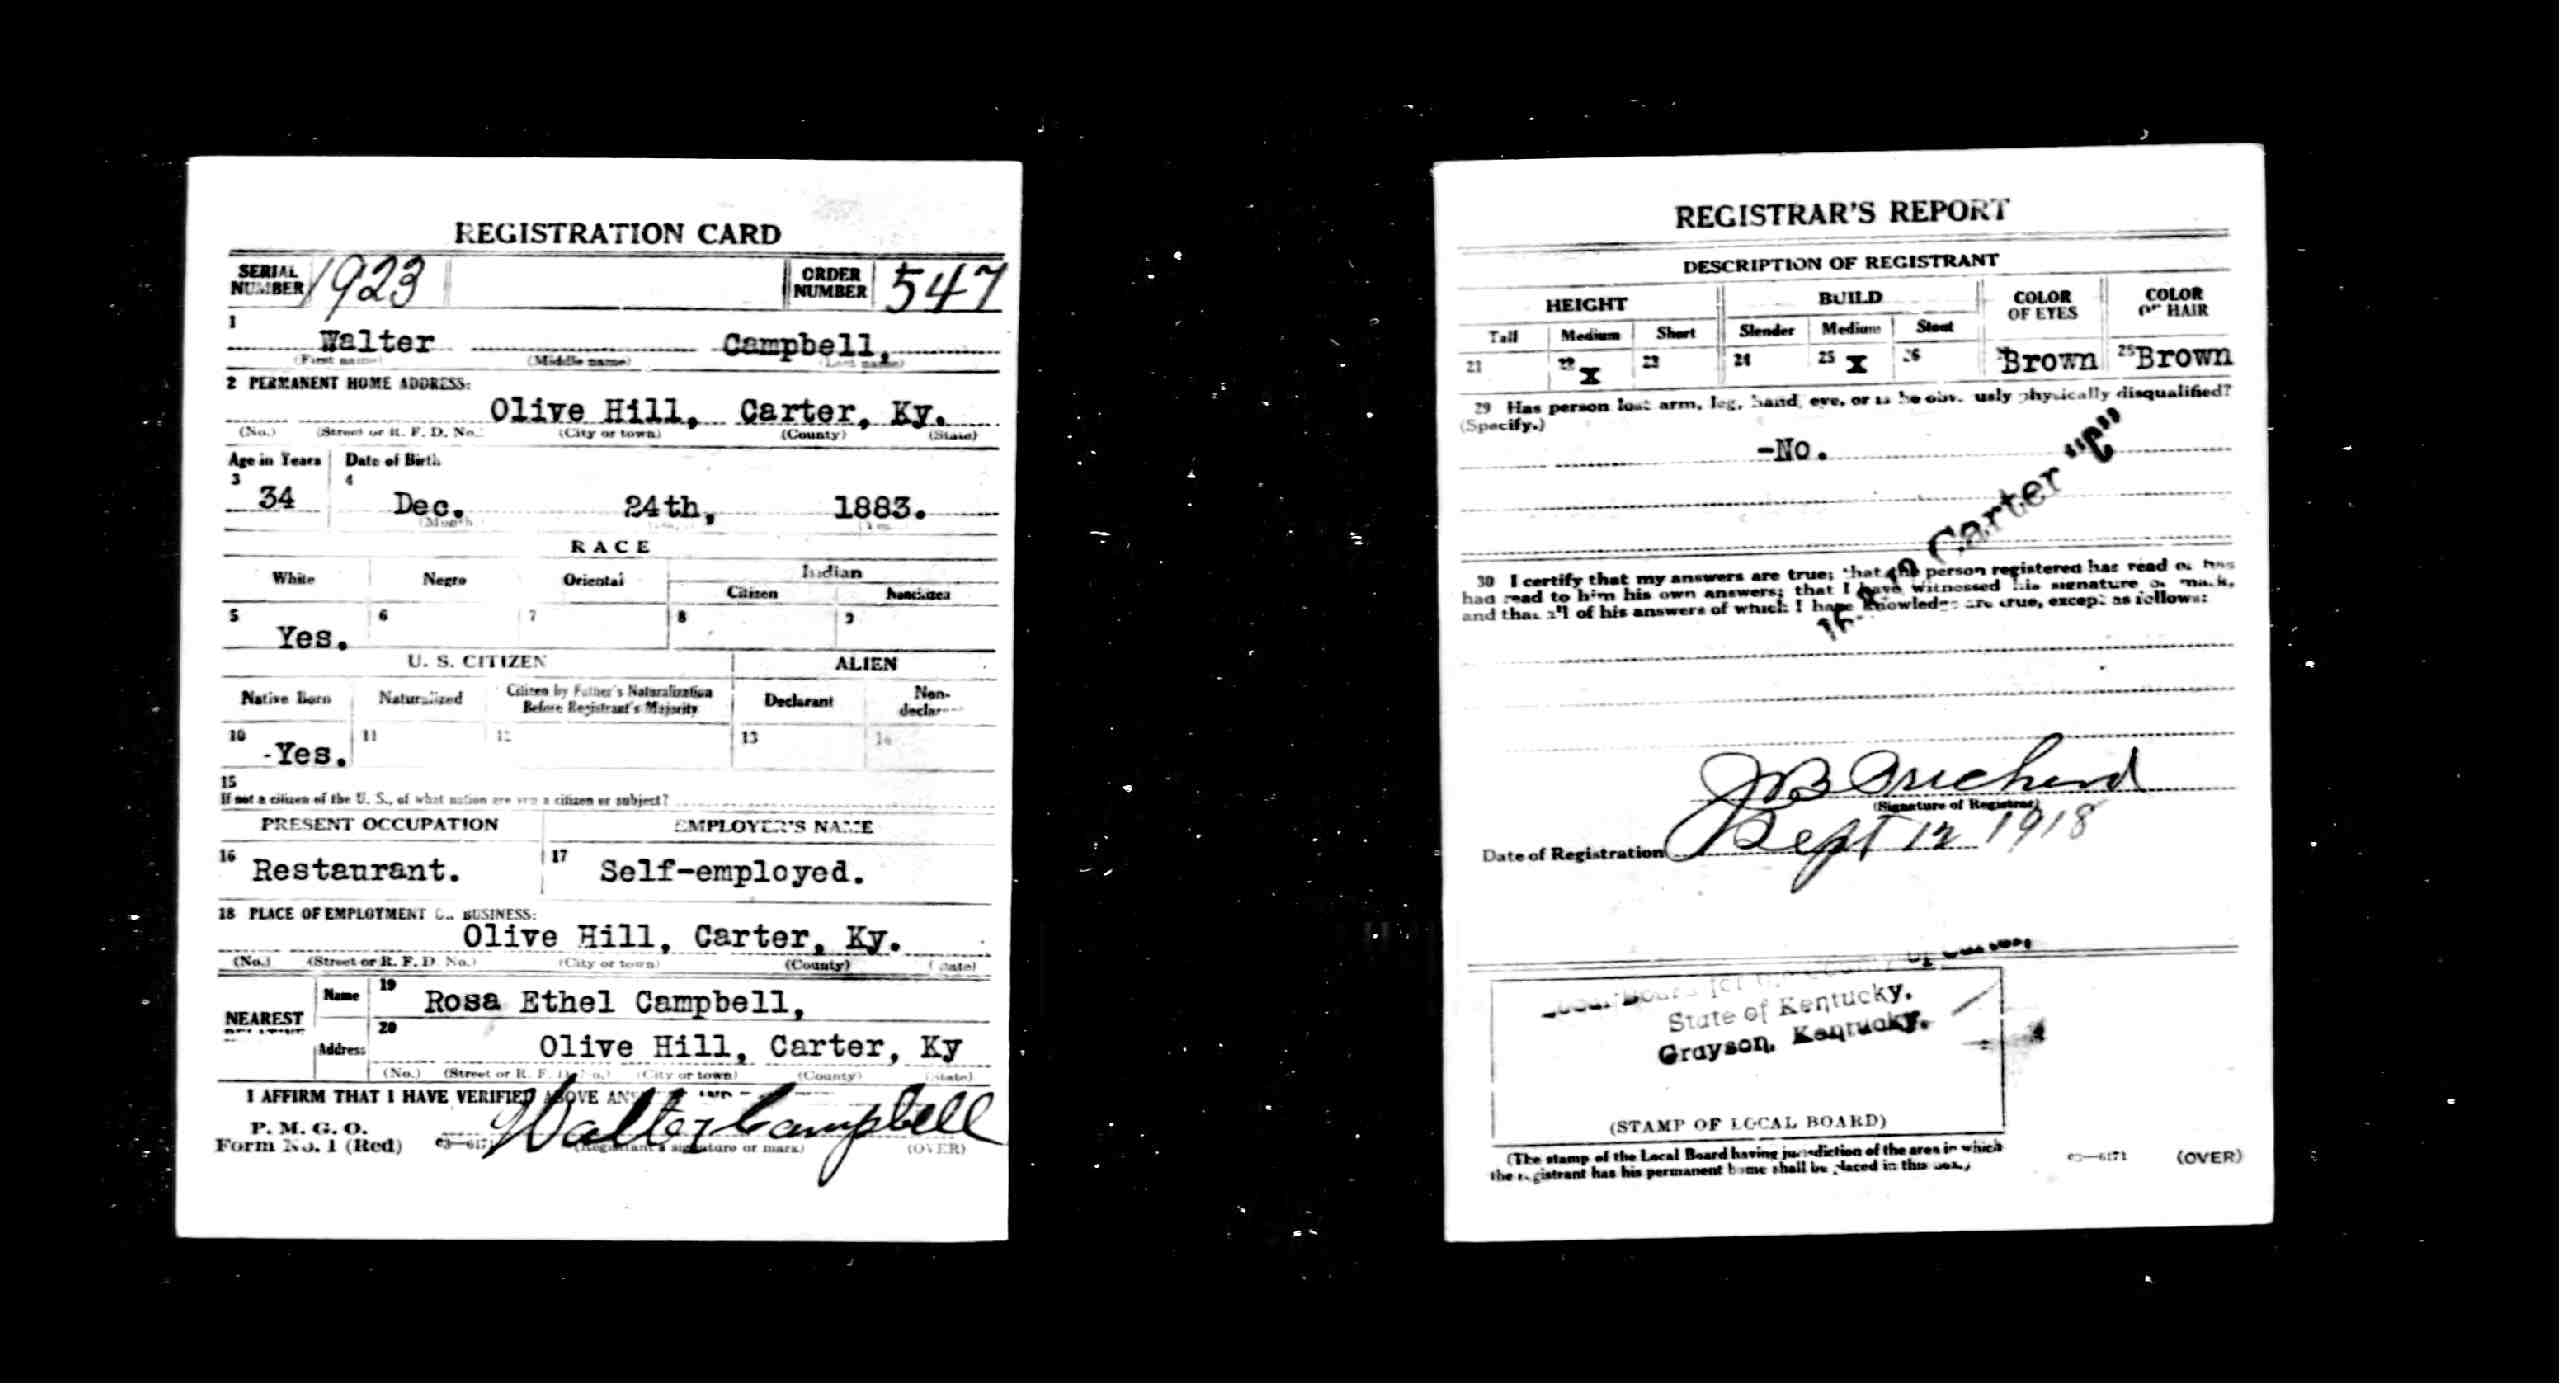 REGISTRATION CARD
SERIAL NUMBER 1923 ORDER NUMBER 547
1 Walter Campbell,
(First name) (Middle name) (Last name)
2 PERMANENT HOME ADDRESS:
Olive Hill, Carter, Ky.
(No.) (Street or R. F. D. No.) (City or town) (County) (State)
Age in Years Date of Birth
3 34 4 Dec. 24th, 1883.
(Month)
RACE
White Negro Oriental Indian
Citizen Noncitizen
5 Yes. 6 7 8 9
U. S. CITIZEN ALIEN
Native Born Naturalized Citizen by Father's Naturalization Before Registrant's Majority Declarant Non-declarant
10 -Yes. 11 12 13 14
15
If not a citizen of the U. S., of what nation are you a citizen or subject?
PRESENT OCCUPATION EMPLOYER'S NAME
16 Restaurant. 17 Self-employed.
18 PLACE OF EMPLOYMENT OR BUSINESS:
Olive Hill, Carter, Ky.
(No.) (Street or R. F. D. No.) (City or town) (County) (State)
NEAREST RELATIVE
Name 19 Rosa Ethel Campbell,
Address 20 Olive Hill, Carter, Ky
(No.) (Street or R. F. D. No.) (City or town) (County) (State)
I AFFIRM THAT I HAVE VERIFIED ABOVE
P. M. G. O.
Form No. 1 (Red) Walter Campbell
(Registrant's signature or mark) (OVER)
REGISTRAR'S REPORT
DESCRIPTION OF REGISTRANT
HEIGHT BUILD COLOR OF EYES COLOR OF HAIR
Tall Medium Short Slender Medium Stout
21 22 X 23 24 25 X 26 Brown Brown
29 Has person lost arm, leg, hand, eye, or is he obviously physically disqualified?
(Specify.)
-No.
Carter "C"
30 I certify that my answers are true; that the person registered has read or has
had read to him his own answers; that I have witnessed his signature or mark,
and that all of his answers of which I have knowledge are true, except as follows:
J B Prichard
(Signature of Registrar)
Date of Registration Sept 12 1918
Local Board for the County of Carter
State of Kentucky.
Grayson, Kentucky.
(STAMP OF LOCAL BOARD)
(The stamp of the Local Board having jurisdiction of the area in which
the registrant has his permanent home shall be placed in this box.)
03—6171 (OVER)